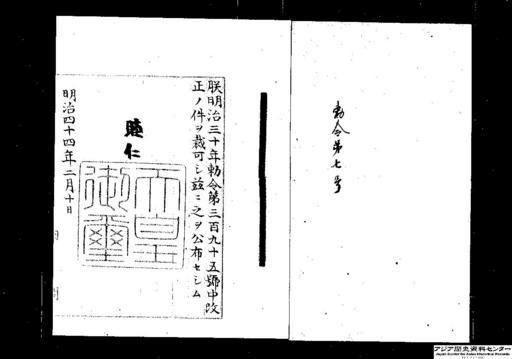 勅令第七号
朕明治三十年勅令第三百九十五號中改
正ノ件ヲ裁可シ茲ニ之ヲ公布セシム
睦仁
天皇御璽
明治四十四年二月十日
アジア歴史資料センター
Japan Center for Asian Historical Records